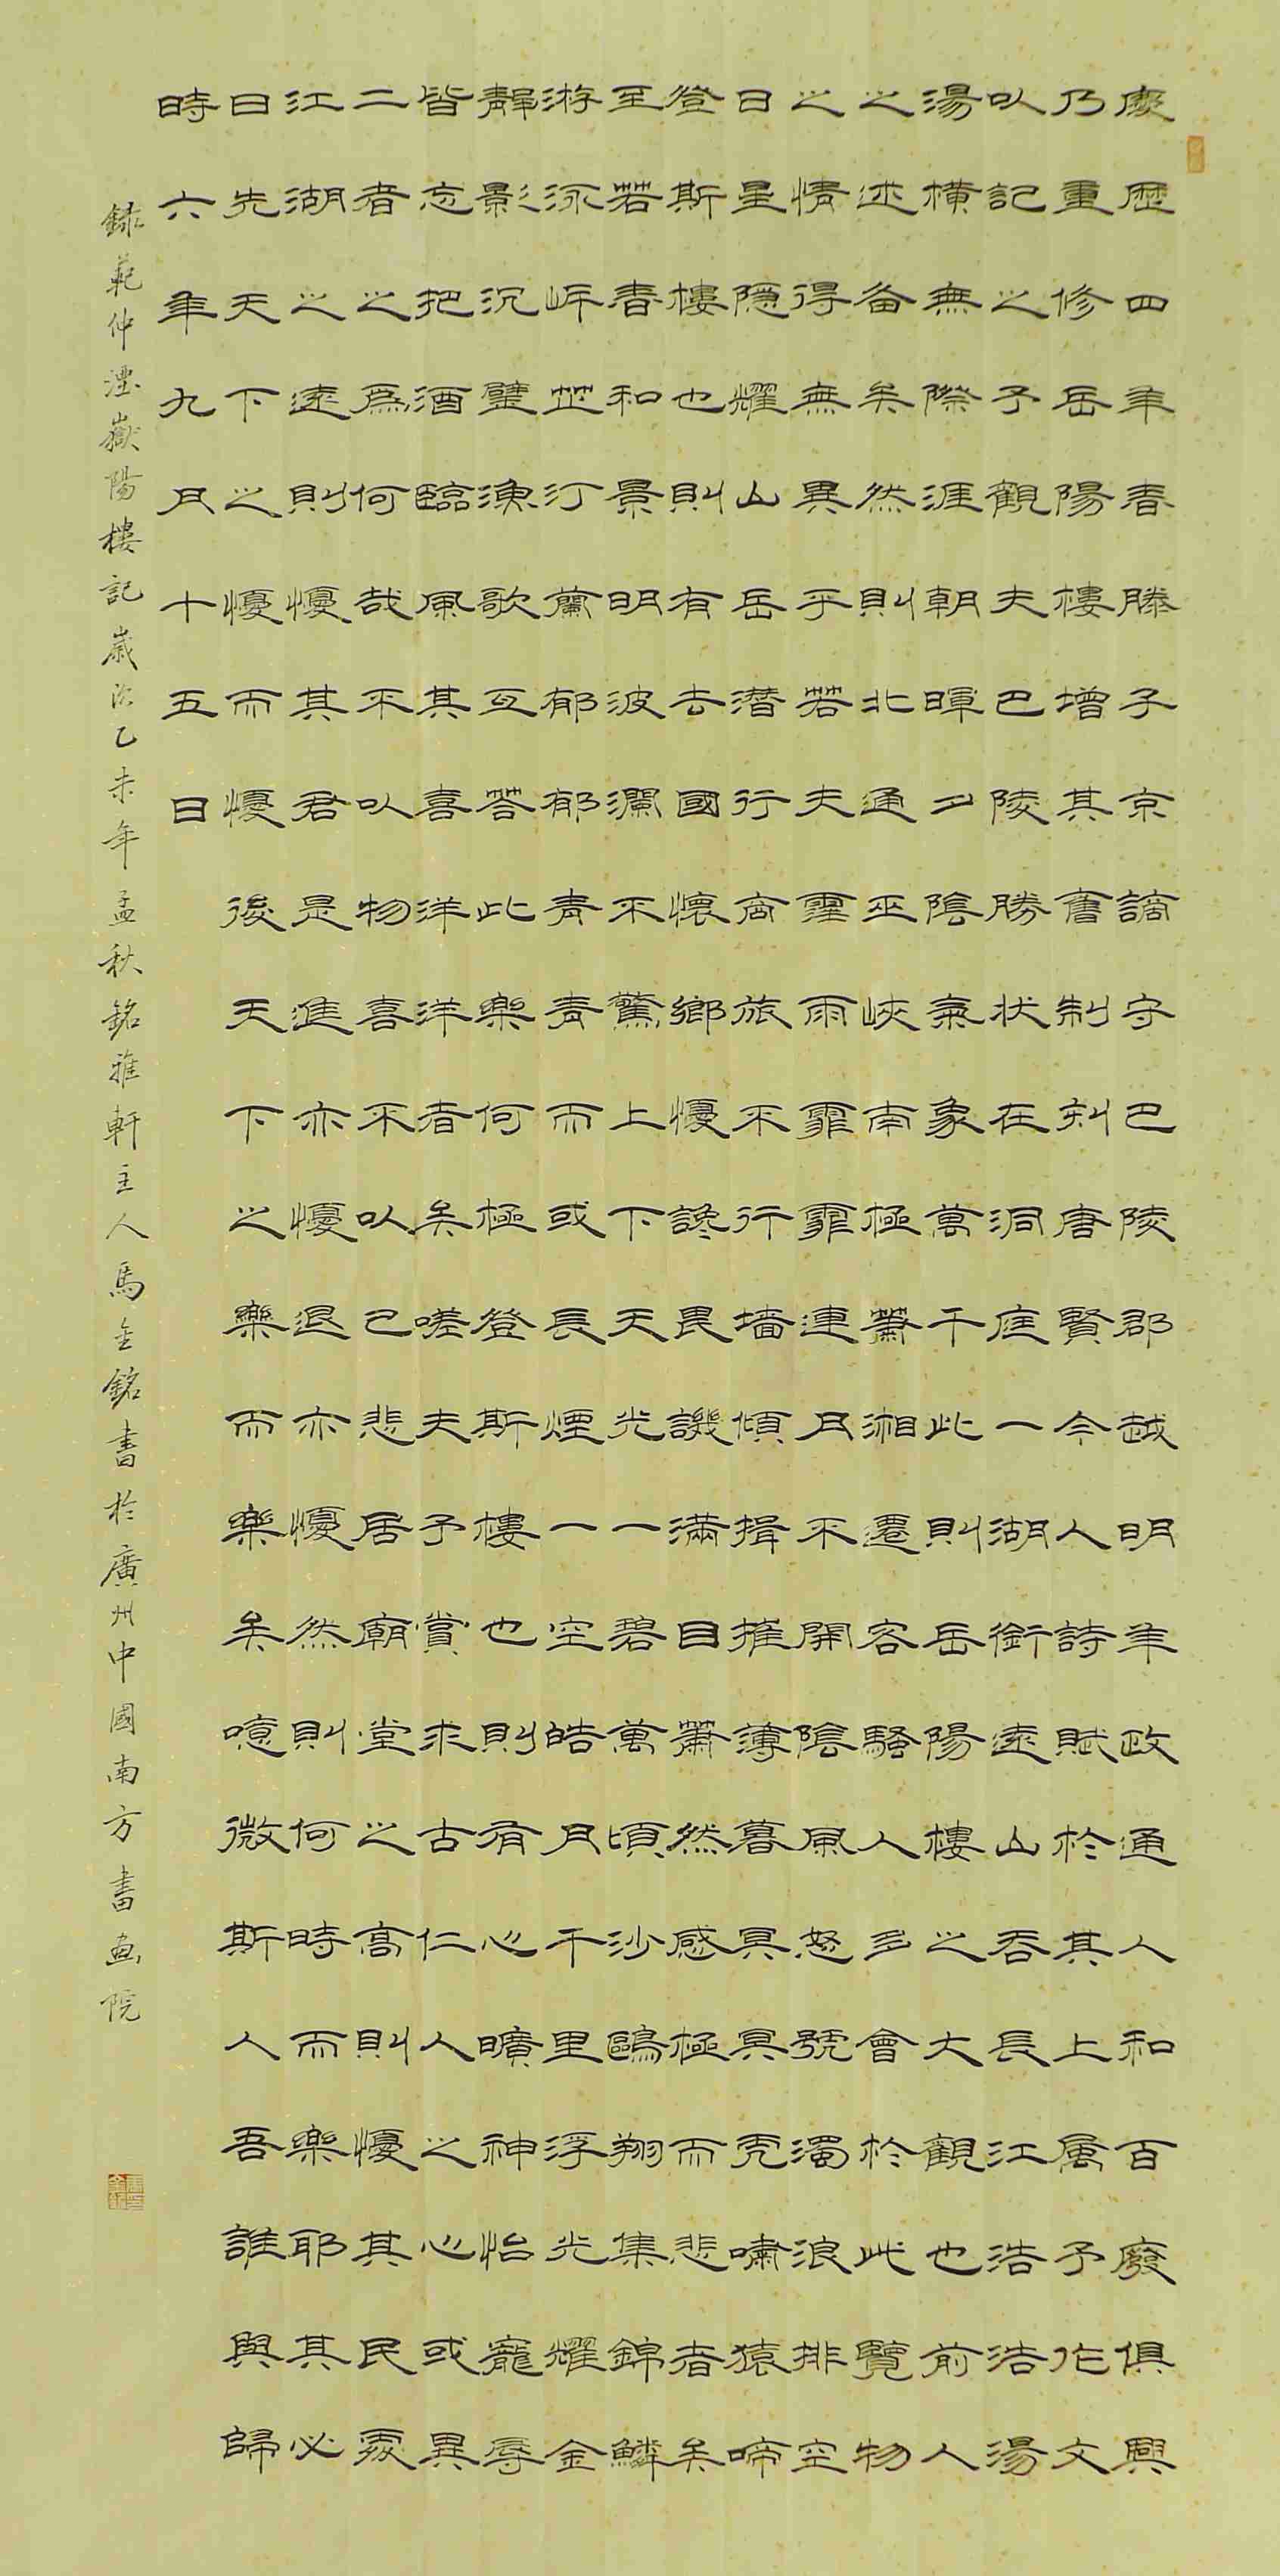 慶歷四年春滕子京謫守巴陵郡越明年政通人和百廢俱興
乃重修岳陽樓增其舊制刻唐賢今人詩賦於其上屬予作文
以記之予觀夫巴陵勝狀在洞庭一湖銜遠山吞長江浩浩湯
湯橫無際涯朝暉夕陰氣象萬千此則岳陽樓之大觀也前人
之述备矣然則北通巫峽南極蕭湘遷客騷人多會於此覽物
之情得無異乎若夫霪雨霏霏連月不開陰風怒號濁浪排空
日星隱耀山岳潛行商旅不行墻傾揖摧薄暮冥冥虎嘯猿啼
登斯樓也則有去國懷鄉懮讒畏譏滿目蕭然感極而悲者矣
至若春和景明波瀾不驚上下天光一碧萬頃沙鷗翔集錦鱗
游泳岸芷汀蘭郁郁青青而或長煙一空皓月千里浮光耀金
靜影沉璧漁歌互答此樂何極登斯樓也則有心曠神怡寵辱
皆忘把酒臨風其喜洋洋者矣嗟夫予賞求古仁人之心或異
二者之為何哉不以物喜不以己悲居廟堂之高則懮其民處
江湖之遠則懮其君是進亦懮退亦懮然則何時而樂耶其必
曰先天下之懮而懮後天下之樂而樂矣噫微斯人吾誰與歸
時六年九月十五日
錄範仲淹嶽陽樓記歲次乙未年孟秋銘雅軒主人馬金銘書於廣州中國南方書画院